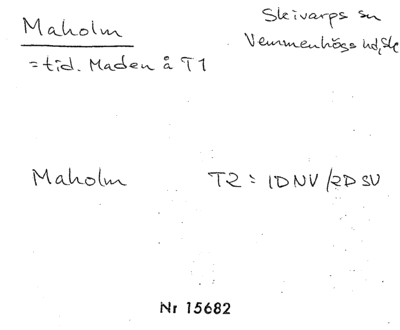 Maholm
= tid. Maden å T1
Skivarps sn
Vemmenhögs hd, Sk
Maholm T2 = 1D NV/2D SV
Nr 15682